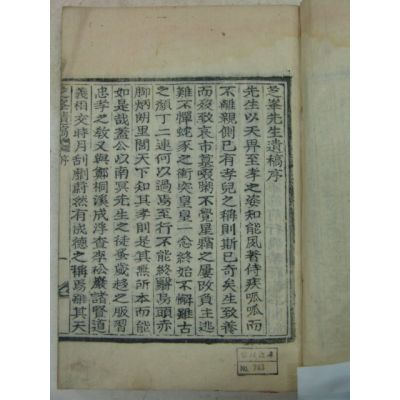 芝峯先生遺稿序
先生以天畀至孝之姿知能夙著侍疾呱呱而
不離親側已有孝兒之稱則斯已奇矣生致養
而歿致哀市墓啜粥不覺星霜之屢改負主逃
難不憚蛇豕之衝突皇皇一念終始不懈雖古
之顔丁二連何以過焉至行不能終辭焉頭赤
脚炳朗里閭天下知其孝則是其無所本而能
如是哉蓋公以南冥先生之徒蚤歲趍之服習
忠孝之敎又與鄭桐溪成浮查李松巖諸賢道
義相交時月刮劘蔚然有成德之稱焉雖其天
芝峯遺稿 序
No. 743